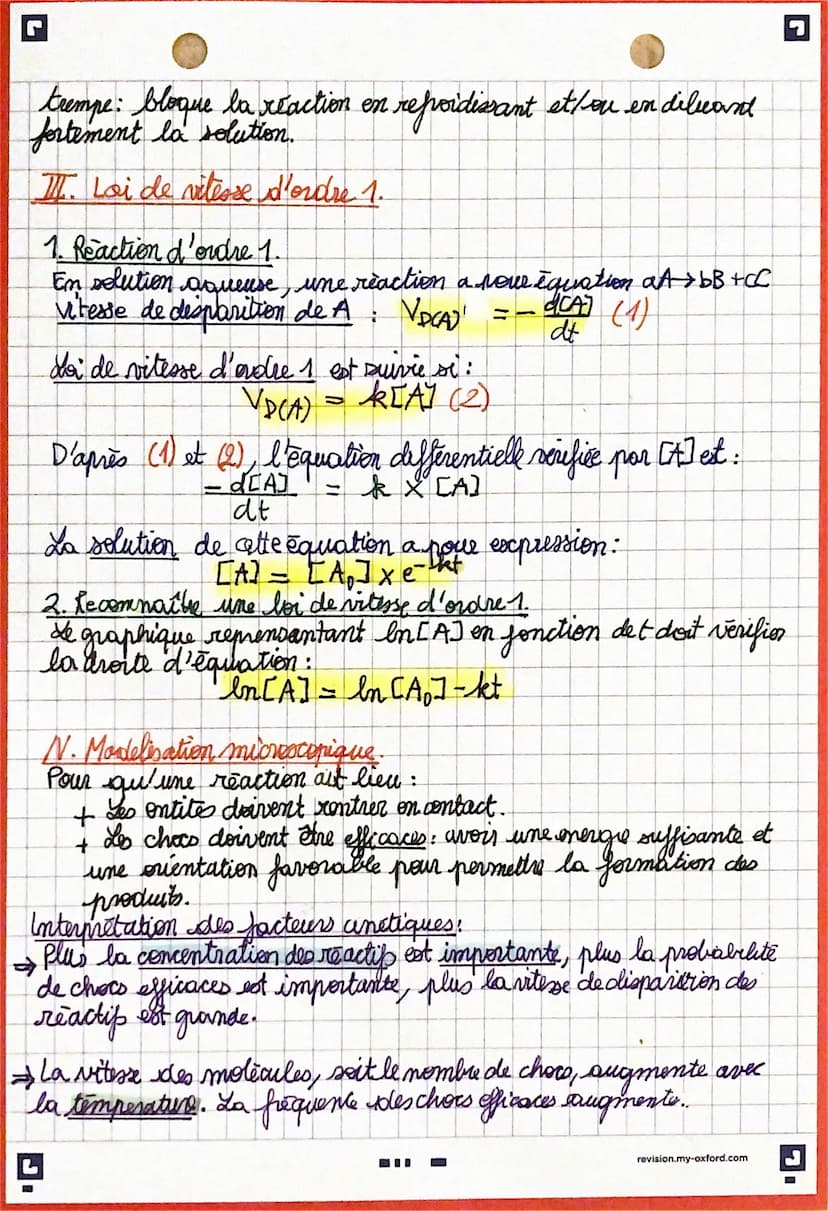 trempe: bloque la réaction en refroidissant et/ou en diluant
fortement la solution.
III. Loi de vitesse d'ordre 1.
1. Réaction d'ordre 1.
En solution aqueuse, une réaction a pour équation aA→bB+cC
Vitesse de disparition de A : V_D(A)' = - d[A]/dt (1)
Loi de vitesse d'ordre 1 est suivie si :
V_D(A) = k[A] (2)
D'après (1) et (2), l'équation différentielle vérifiée par [A] est :
-d[A]/dt = k × [A]
La solution de cette équation a pour expression :
[A] = [A₀] × e^-kt
2. Reconnaître une loi de vitesse d'ordre 1.
Le graphique reprensantant ln[A] en fonction de t doit vérifier
la droite d'équation :
ln[A] = ln[A₀] - kt
IV. Modélisation microscopique.
Pour qu'une réaction ait lieu :
+ Les entités doivent rentrer en contact.
+ Les chocs doivent être efficaces : avoir une énergie suffisante et
une orientation favorable pour permettre la formation des
produits.
Interprétation des facteurs cinétiques :
⇒ Plus la concentration des réactifs est importante, plus la probabilité
de chocs efficaces est importante, plus la vitesse de disparition des
réactifs est grande.
⇒ La vitesse des molécules, soit le nombre de chocs, augmente avec
la température. La fréquence des chocs efficaces augmente..
revision.my-oxford.com